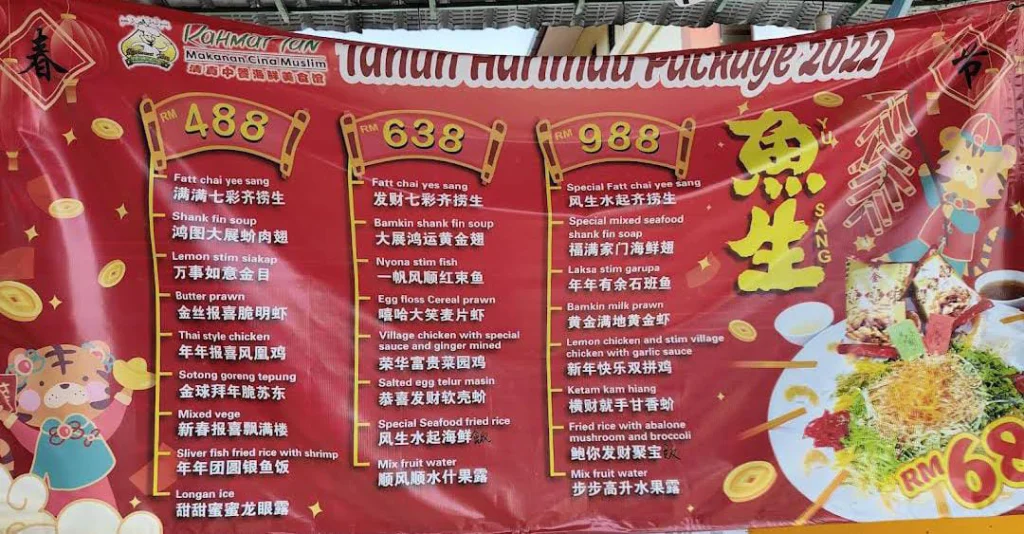 春
Rahmat Tan
Makanan Cina Muslim
Tahun Harimau Package 2022
节
RM 488
Fatt chai yee sang
满满七彩齐捞生
Shank fin soup
鸿图大展蚧肉翅
Lemon stim siakap
万事如意金目
Butter prawn
金丝报喜脆明虾
Thai style chicken
年年报喜凤凰鸡
Sotong goreng tepung
金球拜年脆苏东
Mixed vege
新春报喜飘满楼
Sliver fish fried rice with shrimp
年年团圆银鱼饭
Longan ice
甜甜蜜蜜龙眼露
RM 638
Fatt chai yes sang
发财七彩齐捞生
Bamkin shank fin soup
大展鸿运黄金翅
Nyona stim fish
一帆风顺红束鱼
Egg floss Cereal prawn
嘻哈大笑麦片虾
Village chicken with special
sauce and ginger mined
荣华富贵菜园鸡
Salted egg telur masin
恭喜发财软壳蚧
Special Seafood fried rice
风生水起海鲜飯
Mix fruit water
顺风顺水什果露
RM 988
Special Fatt chai yee sang
风生水起齐捞生
Special mixed seafood
shank fin soap
福满家门海鲜翅
Laksa stim garupa
年年有余石班鱼
Bamkin milk prawn
黄金满地黄金虾
Lemon chicken and stim village
chicken with garlic sauce
新年快乐双拼鸡
Ketam kam hiang
横财就手甘香蚧
Fried rice with abalone
mushroom and broccoli
鲍你发财聚宝
Mix fruit water
步步高升水果露
魚生
YU SANG
RM 68